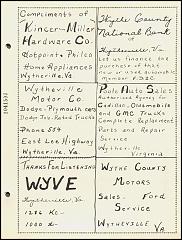 Compliments of
Kincer-Miller
Hardware Co.
Hotpointe Philco
Home Appliances
Wytheville, Va.
Wythe County
National Bank
of
Wytheville, Va.
Let us finance the
purchase of that
new or used automobile
Member F.D.I.C.
Wytheville
Motor Co.
Dodge-Plymouth cars
Dodge Job-Rated Trucks
Phone 554
East Lee Highway
Wytheville, Va.
Poole Auto Sales
Authorized Agency for
Cadillac, Oldsmobile
and GMC Trucks
Complete Replacement
Parts and Repair
Service
Wytheville
Virginia
Thanks For Listening
WYVE
Wytheville, Va.
1280 Kc-
1000 w-
Wythe County
Motors
Sales Ford
Service
Wytheville Va